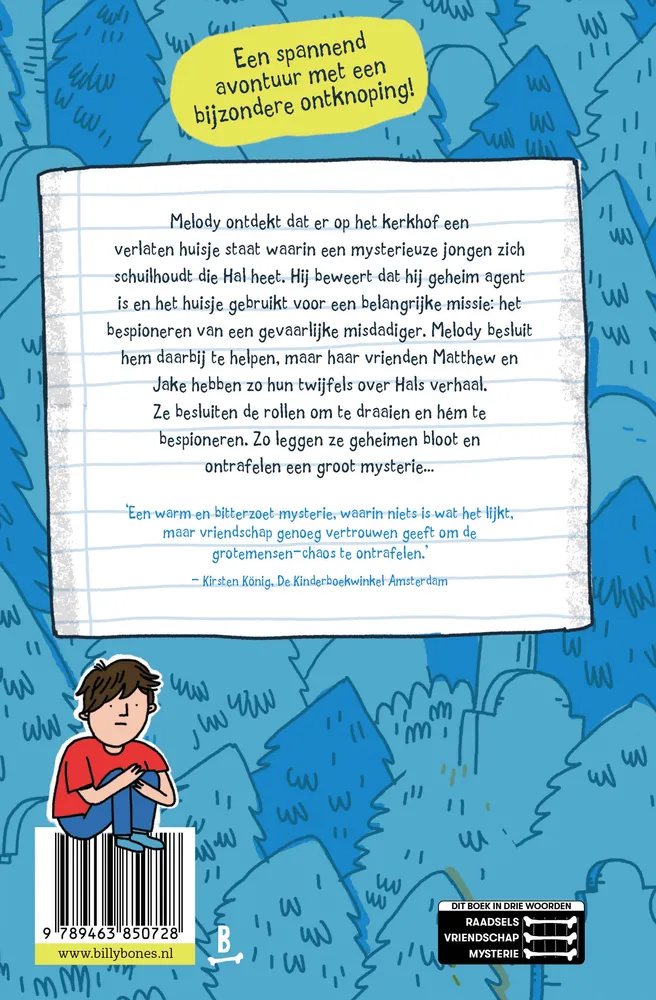 Een spannend
avontuur met een
bijzondere ontknoping!
Melody ontdekt dat er op het kerkhof een
verlaten huisje staat waarin een mysterieuze jongen zich
schuilhoudt die Hal heet. Hij beweert dat hij geheim agent
is en het huisje gebruikt voor een belangrijke missie: het
bespioneren van een gevaarlijke misdadiger. Melody besluit
hem daarbij te helpen, maar haar vrienden Matthew en
Jake hebben zo hun twijfels over Hals verhaal.
Ze besluiten de rollen om te draaien en hém te
bespioneren. Zo leggen ze geheimen bloot en
ontrafelen een groot mysterie...
'Een warm en bitterzoet mysterie, waarin niets is wat het lijkt,
maar vriendschap genoeg vertrouwen geeft om de
grotemensen-chaos te ontrafelen.'
– Kirsten König, De Kinderboekwinkel Amsterdam
9 789463 850728
www.billybones.nl
B
DIT BOEK IN DRIE WOORDEN
RAADSELS
VRIENDSCHAP
MYSTERIE